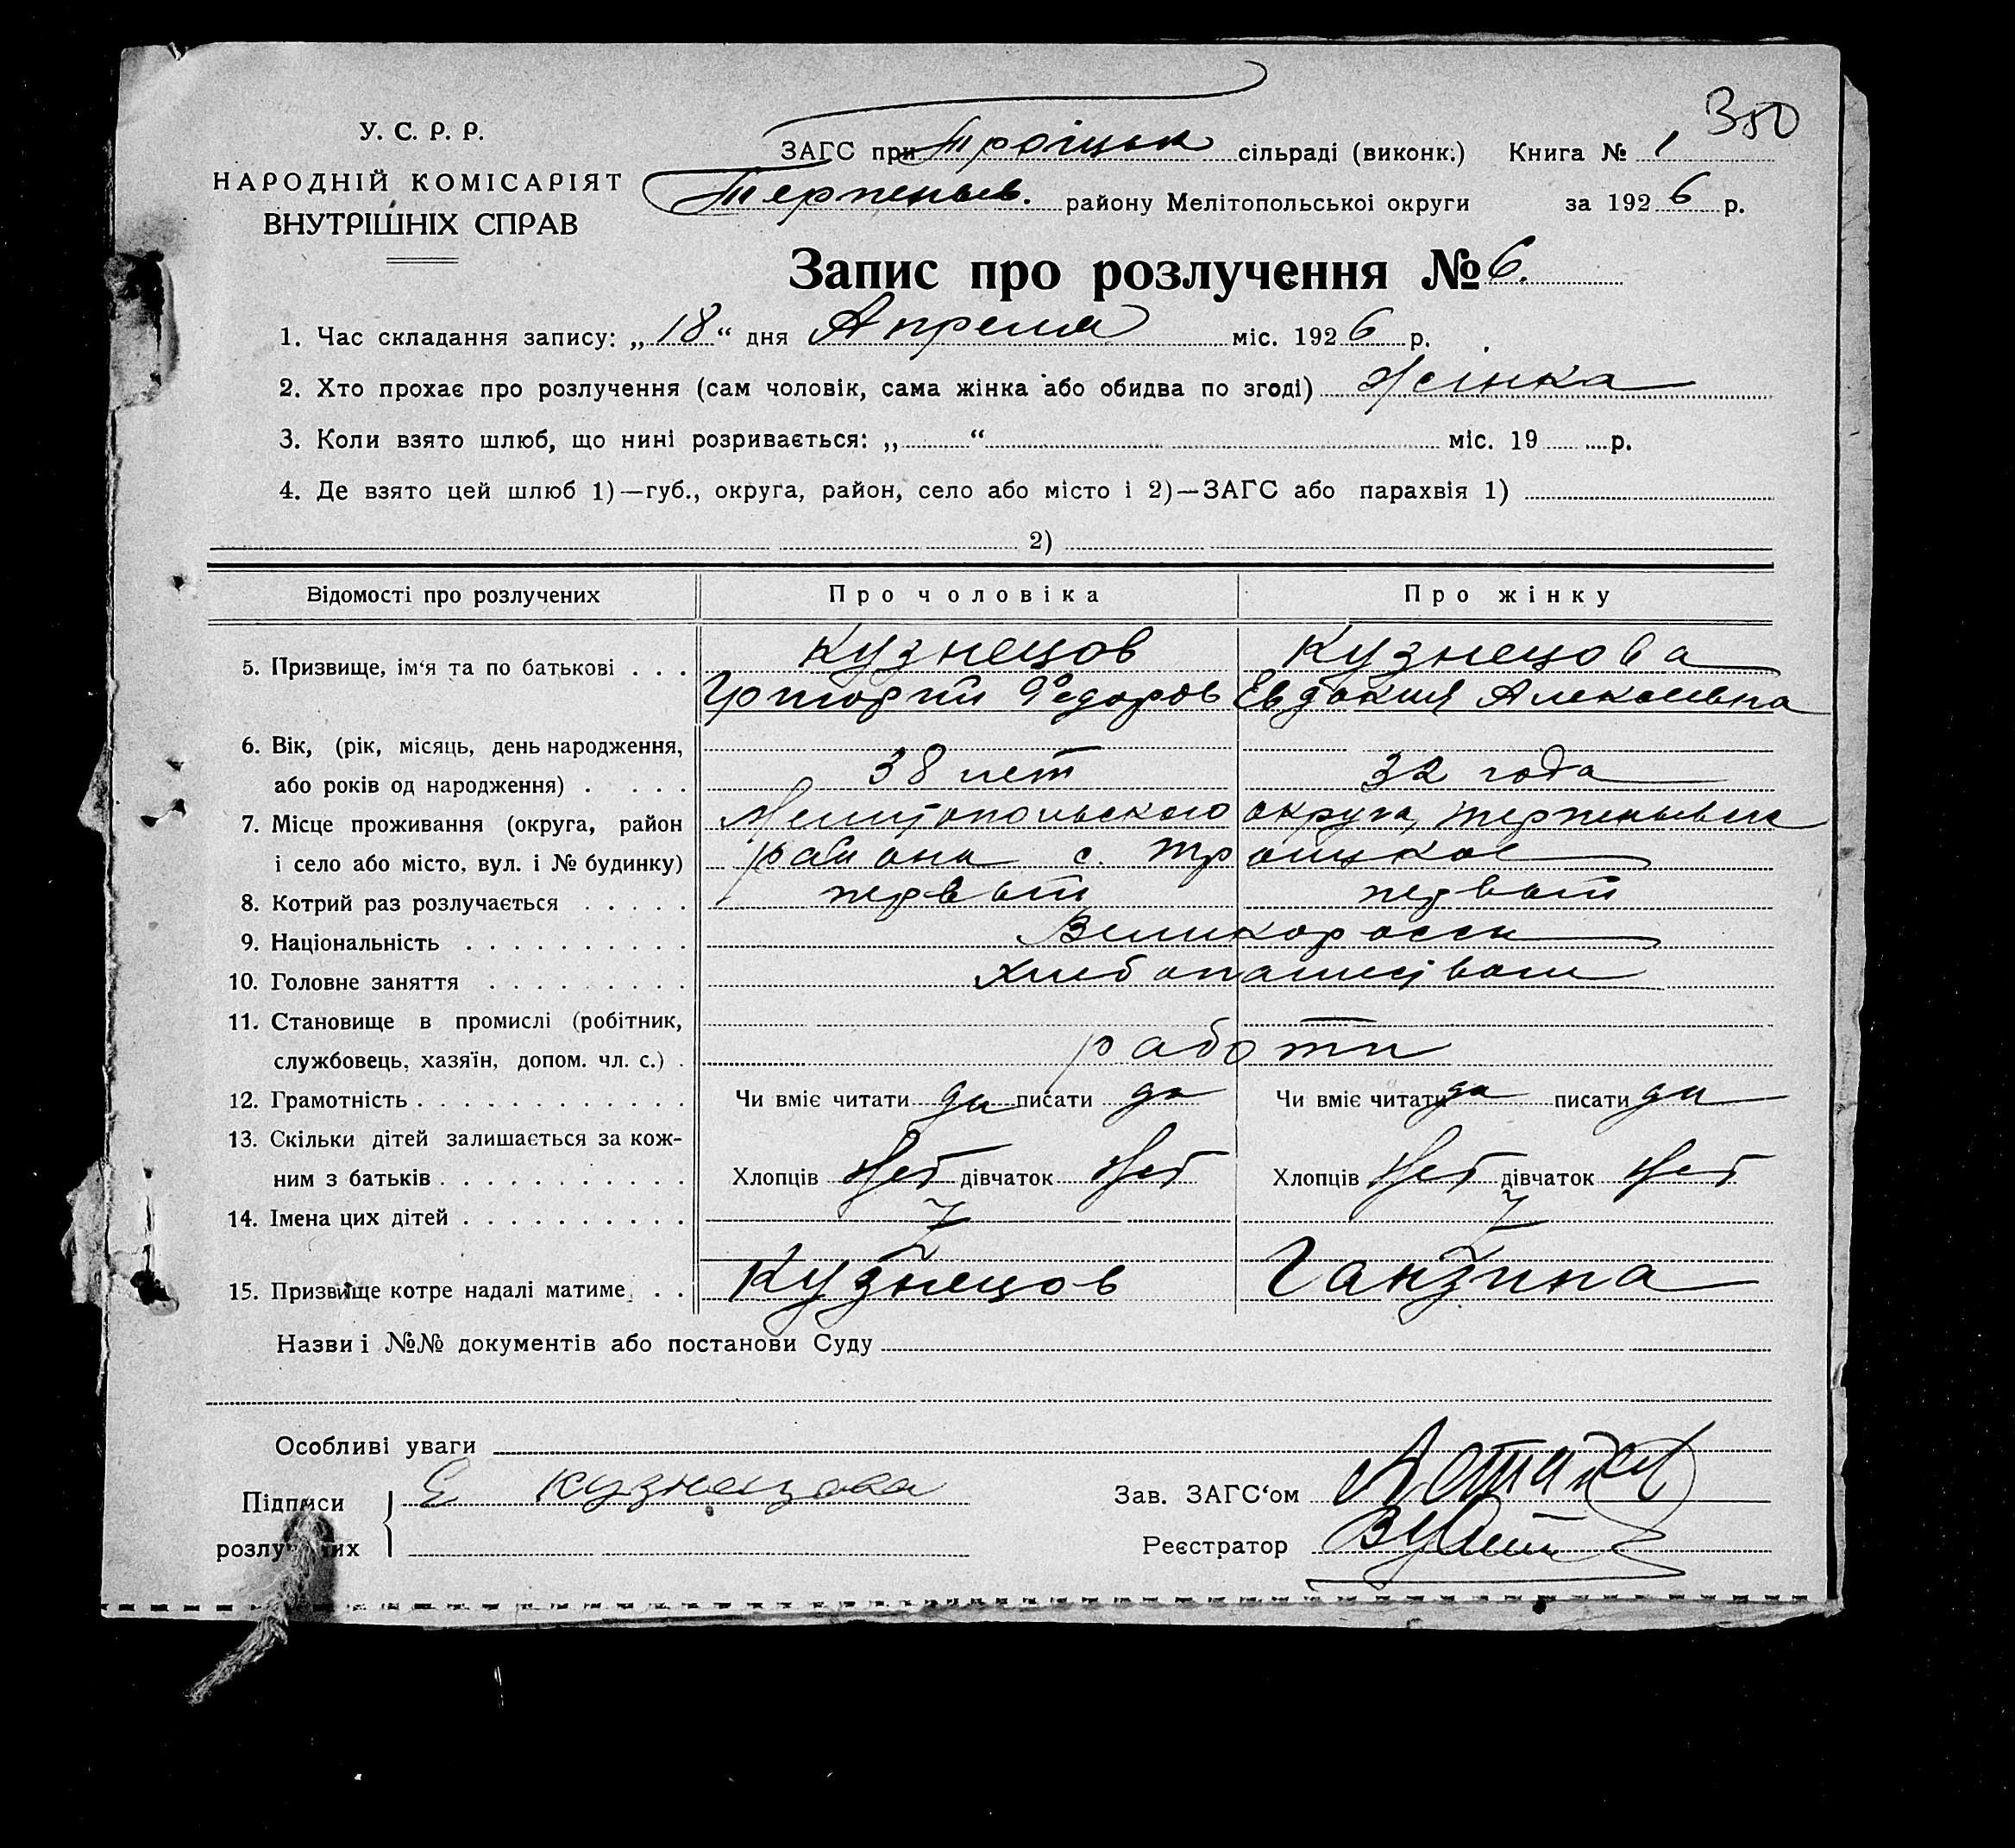 350
У. С. Р. Р.
НАРОДНІЙ КОМІСАРІЯТ
ВНУТРІШНІХ СПРАВ
ЗАГС при Троіцьк сільраді (виконк.) Книга № 1
Терпеньев. району Мелітопольськоі округи за 1926 р.
Запис про розлучення № 6.
1. Час складання запису: „18“ дня Апреля міс. 1926 р.
2. Хто прохає про розлучення (сам чоловік, сама жінка або обидва по згоді) Жінка
3. Коли взято шлюб, що нині розривається: „ “ міс. 19 р.
4. Де взято цей шлюб 1)—губ., округа, район, село або місто і 2)—ЗАГС або парахвія 1)
2)
Відомості про розлучених Про чоловіка Про жінку
5. Призвище, ім‘я та по батькові . . . Кузнецов Кузнецова
Григорий Федоров Евдокия Алексеевна
6. Вік, (рік, місяць, день народження,
або років од народження) . . . . 38 лет 32 года
7. Місце проживання (округа, район Мелитопольского округа, Терпеньевск
і село або місто, вул. і № будинку) района с. Троицкое
8. Котрий раз розлучається . . . . . первый первый
9. Національність . . . . . . . . . . Великороссы
10. Головне заняття . . . . . . . . .
11. Становище в промислі (робітник,
службовець, хазяїн, допом. чл. с.) .
12. Грамотність . . . . . . . . . . . . . Чи вміє читати да писати да Чи вміє читати да писати да
13. Скільки дітей залишається за кож-
ним з батьків . . . . . . . . . . . Хлопців Нет дівчаток Нет Хлопців Нет дівчаток Нет
14. Імена цих дітей . . . . . . . . . .
15. Призвище котре надалі матиме . . Кузнецов Ганзина
Назви і №№ документів або постанови Суду
Особливі уваги
Підписи Е Кузнецова Зав. ЗАГС‘ом
розлучених Реєстратор